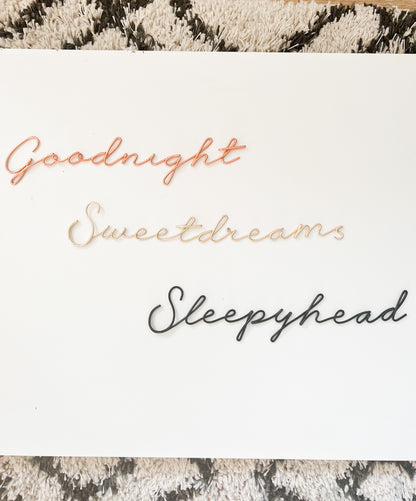 Goodnight
Sweetdreams
Sleepyhead